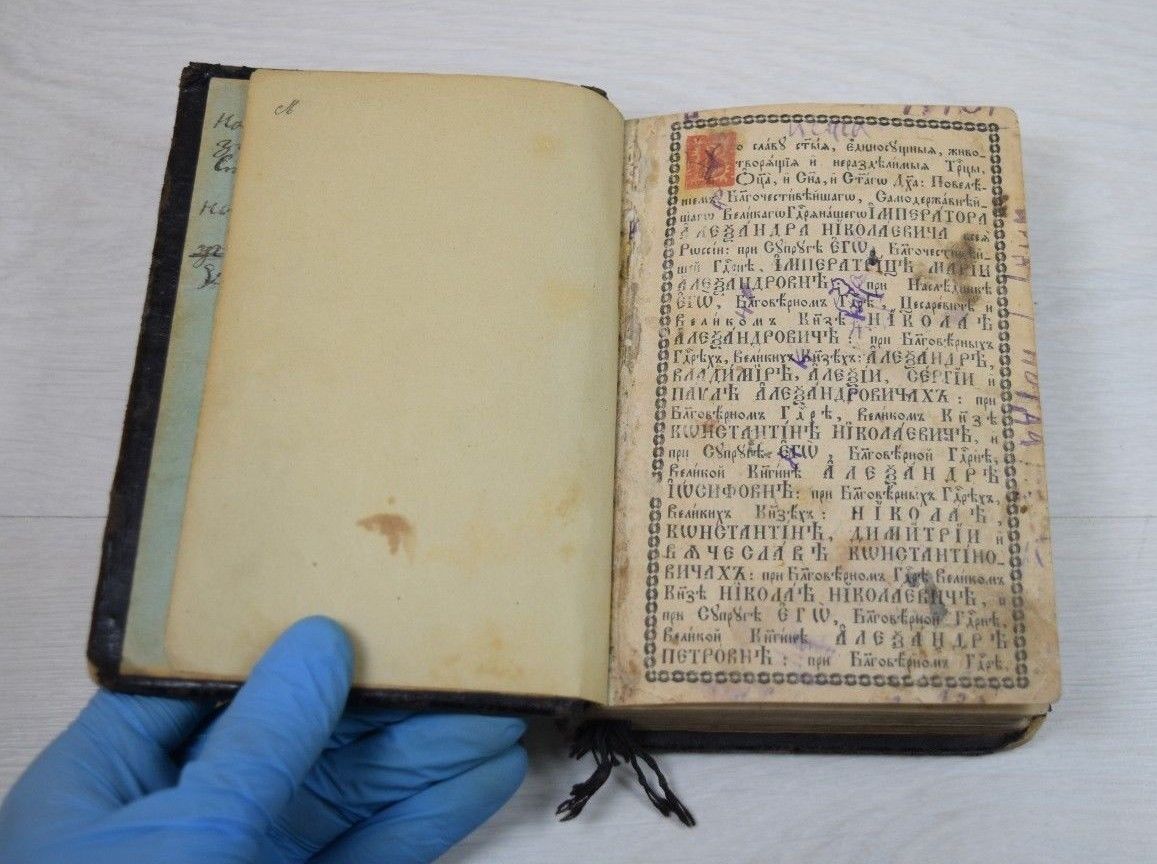 о сла́вꙋ ст҃ы́ѧ, є҆диносꙋ́щныѧ, живо-
творѧ́щїѧ и нераздѣ́лимыѧ Трⷪ҇цы,
Ѻ҆ц҃а̀, и҆ Сн҃а, и҆ Ст҃а́гѡ Дх҃а: Повелѣ́-
нїемъ Бл҃гочести́вѣйшагѡ, Самодержа́внѣй-
шагѡ Вели́кагѡ Гдⷭ҇рѧ на́шегѡ ІМПЕРАТОРА
АЛЕѮАНДРА НІКОЛАЕВИЧА всеѧ̀
Рѡссі́и: при Сꙋпрꙋ́гѣ ЕГѠ̀, Бл҃гочести́вѣй-
шей Гдⷭ҇рнѣ, ІМПЕРАТРИЦѢ МАРІИ
АЛЕѮАНДРОВНѢ: при Наслѣ́дникѣ
ЕГѠ̀, Бл҃говѣ́рномъ Гдⷭ҇рѣ, Цесаре́вичѣ и
Вели́комъ Кн҃зѣ НІКОЛАѢ
АЛЕѮАНДРОВИЧѢ: при Бл҃говѣ́рныхъ
Гдⷭ҇рѣхъ, Вели́кихъ Кн҃зѣхъ: АЛЕѮАНДРѢ,
ВЛАДИМІРѢ, АЛЕѮІИ, СЕРГІИ и
ПАѴЛѢ АЛЕѮАНДРОВИЧАХЪ: при
Бл҃говѣ́рномъ Гдⷭ҇рѣ, Вели́комъ Кн҃зѣ
КѠНСТАНТІНѢ НІКОЛАЕВИЧѢ, и
при Сꙋпрꙋ́гѣ ЕГѠ̀, Бл҃говѣ́рной Гдⷭ҇рнѣ,
Вели́кой Кн҃ги́нѣ АЛЕѮАНДРѢ
ІѠСИФОВНѢ: при Бл҃говѣ́рныхъ Гдⷭ҇рѣхъ,
Вели́кихъ Кн҃зѣхъ: НІКОЛАѢ,
КѠНСТАНТІНѢ, ДИМИТРІИ и
ВѦЧЕСЛАВѢ КѠНСТАНТІНО-
ВИЧАХЪ: при Бл҃говѣ́рномъ Гдⷭ҇рѣ Вели́комъ
Кн҃зѣ НІКОЛАѢ НІКОЛАЕВИЧѢ, и
при Сꙋпрꙋ́гѣ ЕГѠ̀, Бл҃говѣ́рной Гдⷭ҇рнѣ,
Вели́кой Кн҃ги́нѣ АЛЕѮАНДРѢ
ПЕТРОВНѢ: при Бл҃говѣ́рномъ Гдⷭ҇рѣ